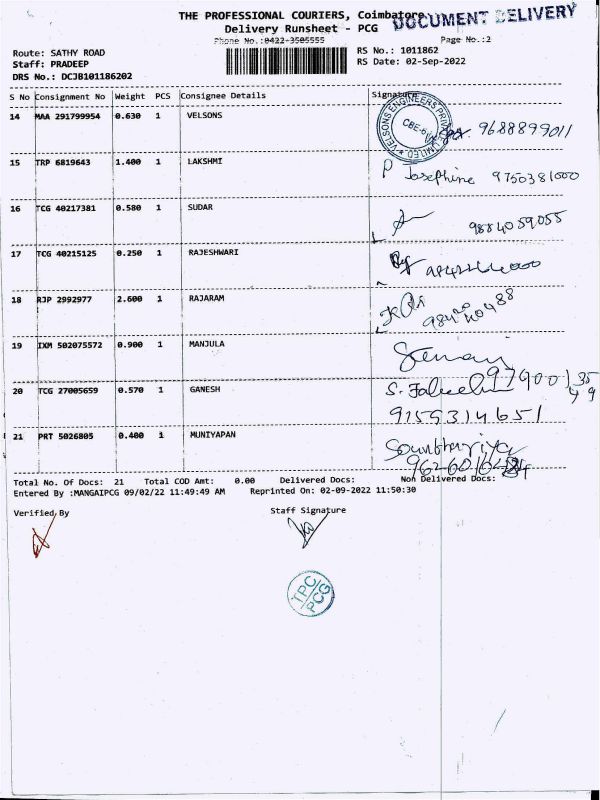 THE PROFESSIONAL COURIERS, Coimbatore
DOCUMENT DELIVERY
Delivery Runsheet - PCG
Phone No.:0422-3505555
Page No.:2
Route: SATHY ROAD
RS No.: 1011862
Staff: PRADEEP
RS Date: 02-Sep-2022
DRS No.: DCJB101186202
S No Consignment No Weight PCS Consignee Details Signature
14 MAA 291799954 0.630 1 VELSONS 9688899011
VELSONS ENGINEERS PRIVATE LIMITED
15 TRP 6819643 1.400 1 LAKSHMI P Josephine 9750381000
16 TCG 40217381 0.580 1 SUDAR 9884059055
17 TCG 40215125 0.250 1 RAJESHWARI
18 RJP 2992977 2.600 1 RAJARAM
19 IXM 502075572 0.900 1 MANJULA
20 TCG 27005659 0.570 1 GANESH
9159314651
21 PRT 5026805 0.400 1 MUNIYAPAN
Total No. Of Docs: 21 Total COD Amt: 0.00 Delivered Docs: Non Delivered Docs:
Entered By :MANGAIPCG 09/02/22 11:49:49 AM Reprinted On: 02-09-2022 11:50:30
Verified By Staff Signature
TPC
PCG